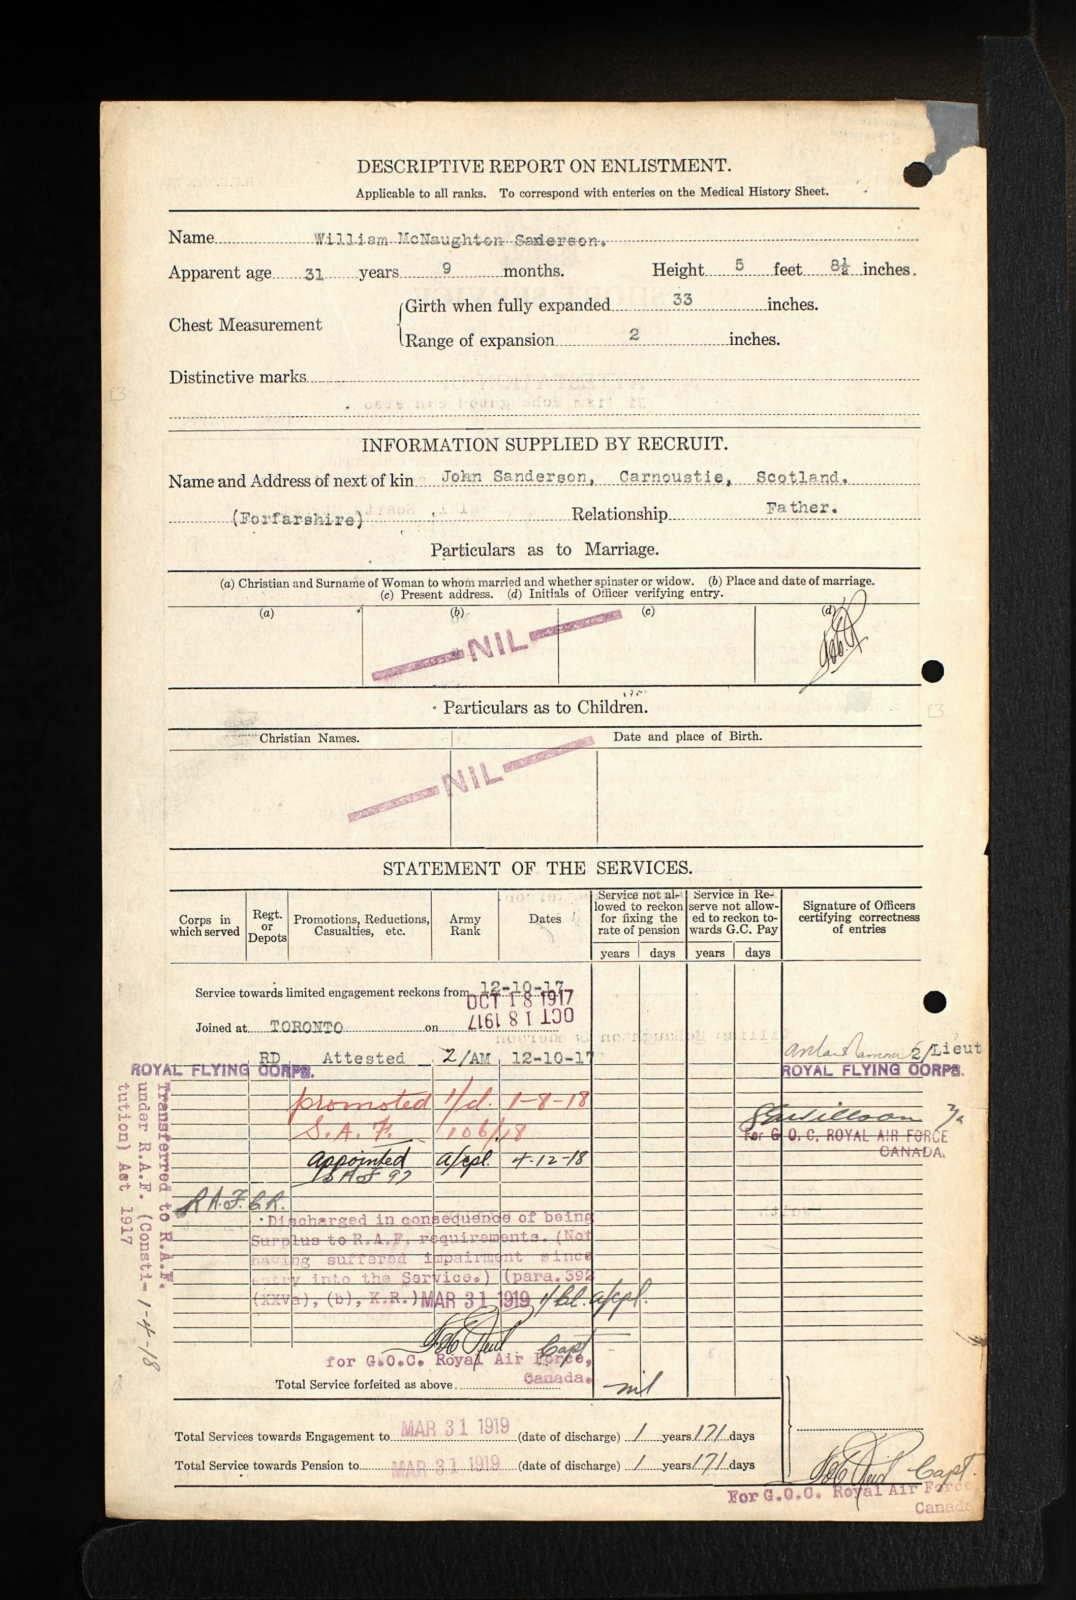 DESCRIPTIVE REPORT ON ENLISTMENT.
Applicable to all ranks. To correspond with enteries on the Medical History Sheet.
Name William McNaughton Sanderson.
Apparent age 31 years 9 months. Height 5 feet 8½ inches.
Chest Measurement
Girth when fully expanded 33 inches.
Range of expansion 2 inches.
Distinctive marks
INFORMATION SUPPLIED BY RECRUIT.
Name and Address of next of kin John Sanderson, Carnoustie, Scotland.
(Forfarshire) Relationship Father.
Particulars as to Marriage.
(a) Christian and Surname of Woman to whom married and whether spinster or widow. (b) Place and date of marriage.
(c) Present address. (d) Initials of Officer verifying entry.
(a) (b) (c) (d)
NIL
Particulars as to Children.
Christian Names. Date and place of Birth.
NIL
STATEMENT OF THE SERVICES.
Corps in which served
Regt. or Depots
Promotions, Reductions, Casualties, etc.
Army Rank
Dates
Service not allowed to reckon for fixing the rate of pension
Service in Reserve not allowed to reckon towards G.C. Pay
Signature of Officers certifying correctness of entries
years days years days
Service towards limited engagement reckons from 12-10-17
OCT 18 1917
Joined at TORONTO on OCT 18 1917
RD Attested 2/AM 12-10-17 2/Lieut
ROYAL FLYING CORPS. ROYAL FLYING CORPS.
promoted 1/cl. 1-8-18
S.A.F. 106/18
for G.O.C. ROYAL AIR FORCE
CANADA.
appointed a/cpl. 4-12-18
97
R.A.F.C.R.
Discharged in consequence of being
Surplus to R.A.F. requirements. (Not
having suffered impairment since
entry into the Service.) (para.392
(XXVa), (b), K.R.) MAR 31 1919 1/Cl. a/cpl.
Capt
for G.O.C. Royal Air Force,
Canada.
Transferred to R.A.F.
under R.A.F. (Consti-
tution) Act 1917
1-4-18
Total Service forfeited as above nil
Total Services towards Engagement to MAR 31 1919 (date of discharge) 1 years 171 days
Total Service towards Pension to MAR 31 1919 (date of discharge) 1 years 171 days
Capt.
For G.O.C. Royal Air Force
Canada